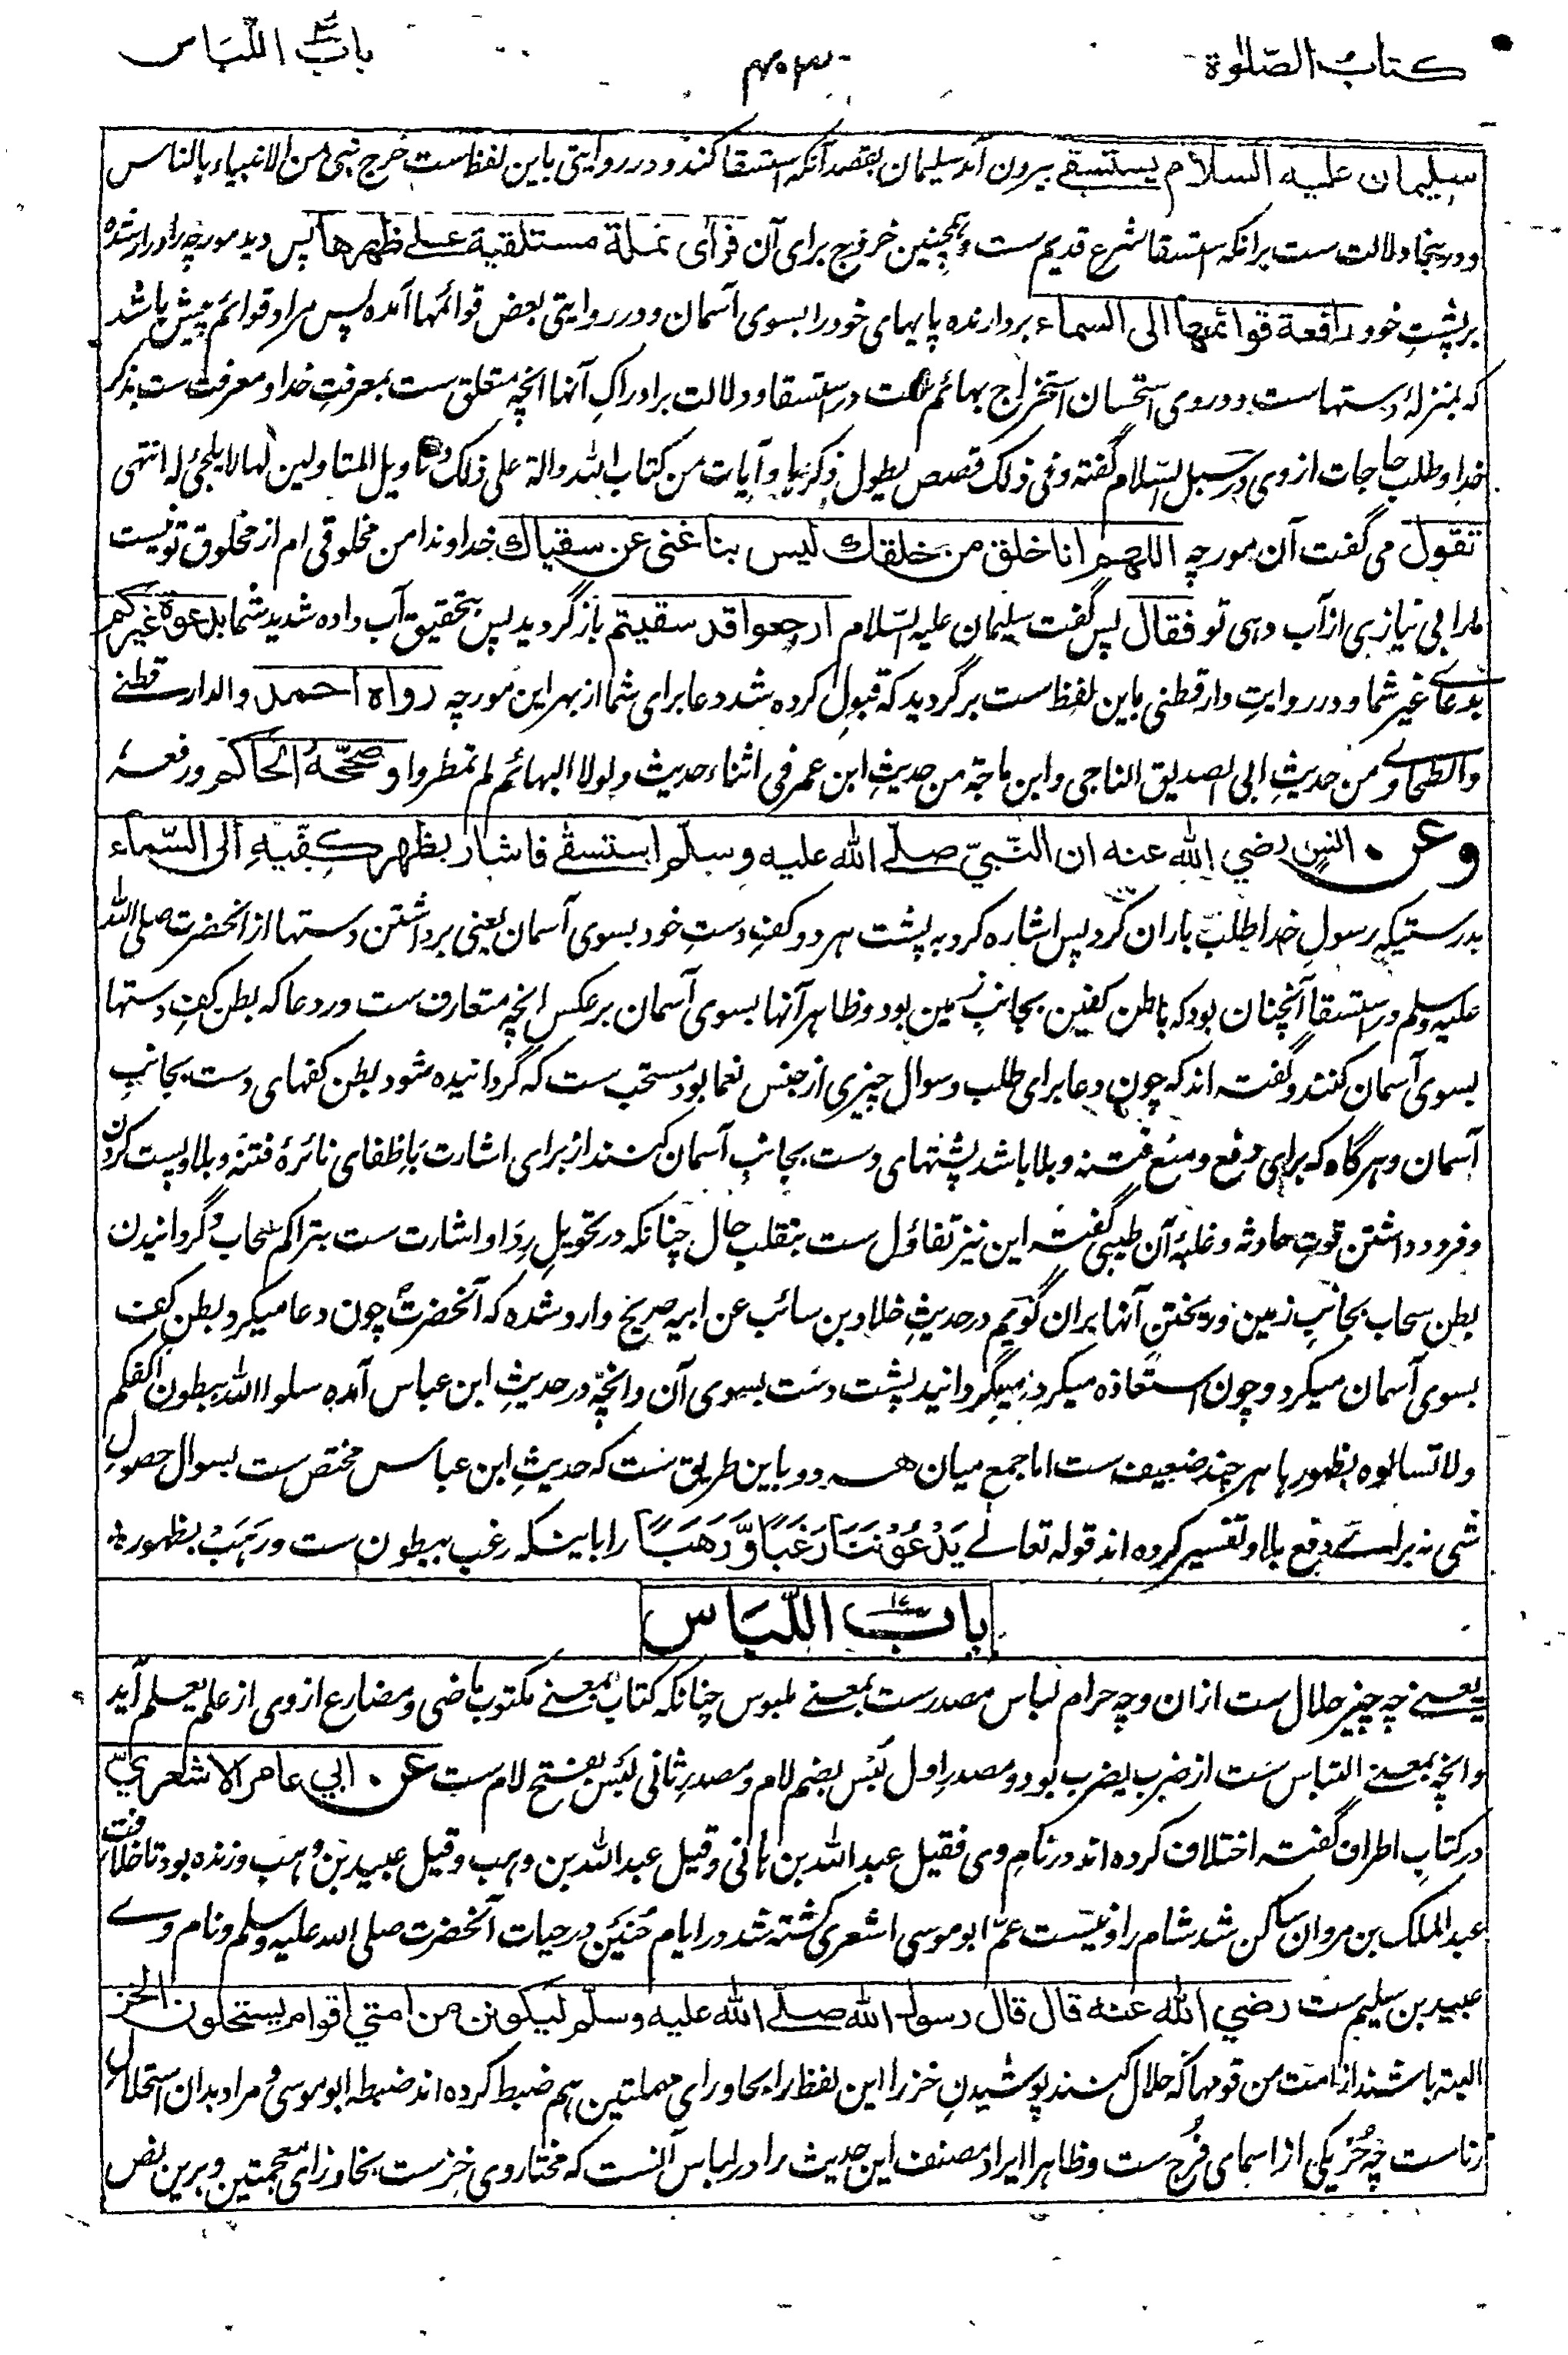 کتاب الصّلوٰة
۴۰۳
باب اللّبَاس
سلیمان علیه السلام یستسقے بیرون آمد سلیمان بقصد آنکه استسقا کند و در روایتی باین لفظ است خرج نبی من الانبیاء بالناس
و درینجا دلالت ست برانکه استسقا شرع قدیم ست و همچنین خروج برای آن فرأی نملة مستلقیة علے ظهرها پس دید مورچه را دراز شده
بر پشتِ خود رافعة قوائمها الی السماء بردارنده پایهای خود را بسوی آسمان و در روایتی بعض قوائمها آمده پس مراد قوائم پیش باشد
که بمنزلهٔ دستهاست و دروی استحسان استخراج بهائم ست در استسقا و دلالت بر ادراکِ آنها انچه متعلق ست بمعرفتِ خدا و معرفت ست بذکر
خدا و طلب حاجات از وی در سبل السّلام گفته وفی ذلک قصص یطول ذکرها و آیات من کتاب الله دالة علی ذلک و تاویل المتاولین لها لا یلجئ له انتهی
تقول می گفت آن مورچه اللهم انا خلق من خلقك لیس بنا غنی عن سقیاك خداوندا من مخلوقی ام از مخلوق تو نیست
مارا بی نیازی از آب دهی تو فقال پس گفت سلیمان علیه السّلام ارجعوا قد سقیتم باز گردید پس بتحقیق آب داده شدید شما بدعوة غیرکم
بدعاے غیر شما و در روایتِ دارقطنی باین لفظ ست برگردید که قبول کرده شد دعا برای شما از بهر این مورچه رواه احمد والدارقطنے
والطحاوے من حدیثِ ابی الصدیق الناجی وابن ماجة من حدیثِ ابن عمر فی اثناء حدیث ولولا البهائم لم تمطروا وصحّحهُ الحاکم ورفعهٔ
وعن انس رضي الله عنه ان النّبيّ صلّے الله علیه وسلّم استسقٰے فاشار بظهر کفّیهِ الی السّماء
بدرستیکه رسولِ خدا طلبِ باران کرد پس اشاره کرد به پشت هر دو کفِ دستِ خود بسوی آسمان یعنی برداشتن دستها از انحضرت صلی الله
علیه وسلم در استسقا آنچنان بود که باطن کفین بجانبِ زمین بود و ظاهر آنها بسوی آسمان بر عکسِ انچه متعارف ست در دعا که بطن کفِ دستها
بسوی آسمان کنند و گفته اند که چون دعا برای طلب و سوال چیزی از جنس نعما بود مستحب ست که گردانیده شود بطن کفهای دست بجانبِ
آسمان و هرگاه که برای دفع و منع فتنه و بلا باشد پشتهای دست بجانبِ آسمان کنند از برای اشارت باطفای نائرهٔ فتنه و بلا و پست کردن
و فرود داشتن قوتِ حادثه و غلبهٔ آن طیبی گفته این نیز تفاؤل ست بتقلب حال چنانکه در تحویلِ ردا و اشارت ست بتراکم سحاب و گردانیدن
بطن سحاب بجانبِ زمین و ریختنِ آنها بران گویم در حدیثِ خلاد بن سائب عن ابیه صریح وارد شده که آنحضرت چون دعا میکرد بطن کف
بسوی آسمان میکرد و چون استعاذه میکرد میگردانید پشت دست بسوی آن و انچه در حدیثِ ابن عباس آمده سلوا الله ببطون اکفکم
ولا تسالوه بظهورها هر چند ضعیف ست اما جمع میان هر دو باین طریق ست که حدیثِ ابن عباس مختص ست بسوال حصولِ
شی نه براے دفع بلا و تفسیر کرده اند قوله تعالے یَدْعُوْنَنَا رَغَبًا وَّرَهَبًا را باینکه رغب ببطون ست و رَهَبْ بظهور
باب اللّبَاس
یعنے چه چیز حلال ست ازان و چه حرام لباس مصدر ست بمعنے ملبوس چنانکه کتاب بمعنے مکتوب ماضی و مضارع از وی از علم یعلم آید
و انچه بمعنے التباس ست از ضرب یضرب بود و مصدرِ اول لُبْس بضم لام و مصدرِ ثانی لَبْس بفتح لام ست عن ابي عامر الاشعریّ
در کتابِ اطراف گفته اختلاف کرده اند در نامِ وی فقیل عبدالله بن هانی وقیل عبدالله بن وهب وقیل عبید بن وهب و زنده بود تا خلافت
عبدالملک بن مروان ساکن شد شام را و نیست عمّ ابو موسی اشعری کشته شد در ایام حُنَیْن در حیات آنحضرت صلی الله علیه وسلم و نام وے
عبید بن سلیم ست رضي الله عنه قال قال رسول الله صلّے الله علیه وسلّم لیکونن من امتي اقوام یستحلون الخز
البته باشند از امت من قومها که حلال کنند پوشیدنِ خز را این لفظ را بحا و رای مهملتین هم ضبط کرده اند ضبطه ابو موسی و مراد بدان استحلالِ
زناست چه حُرْ یکی از اسمای فرج ست و ظاهر ایراد مصنف این حدیث را در لباس آنست که مختار وی خز ست بخا و زای معجمتین و برین نص